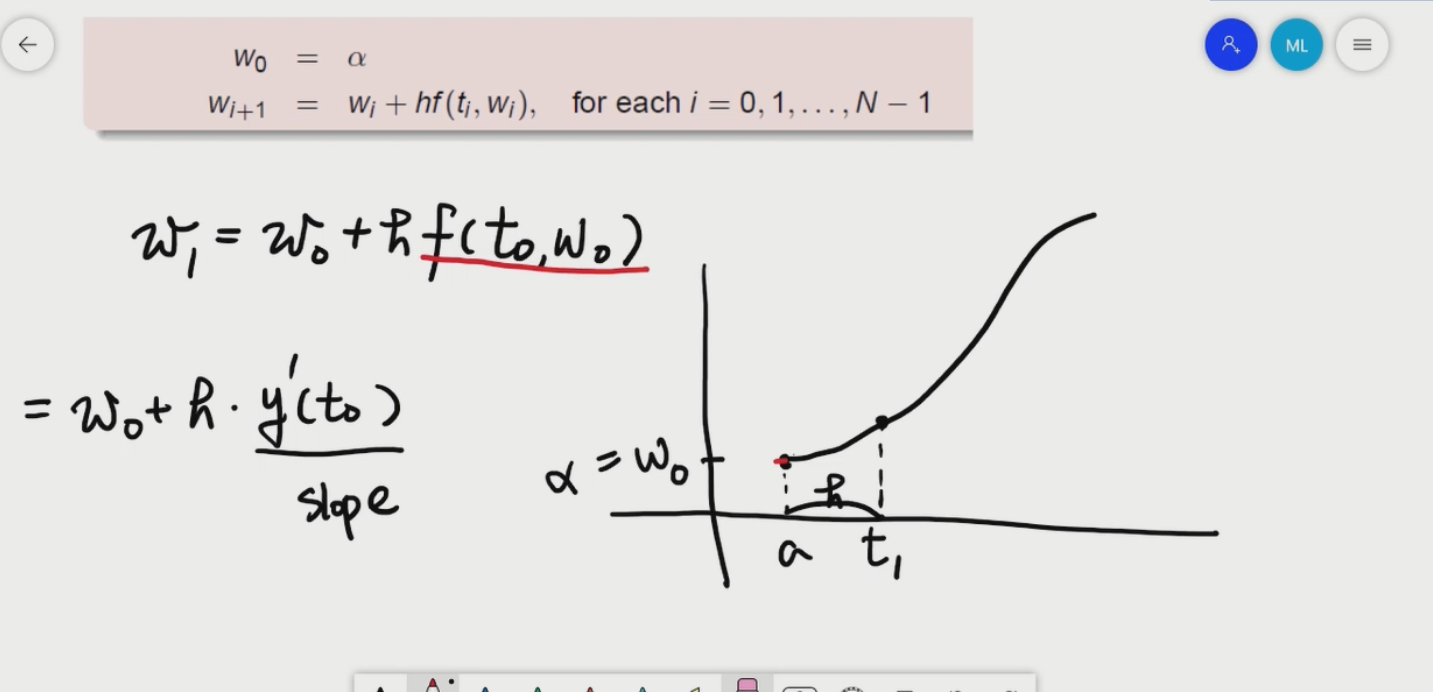 w₀ = α
wᵢ₊₁ = wᵢ + hf(tᵢ, wᵢ), for each i = 0, 1, . . . , N − 1
ML
w₁ = w₀ + h f(t₀, w₀)
= w₀ + h · y'(t₀)
slope
α = w₀
h
a t₁